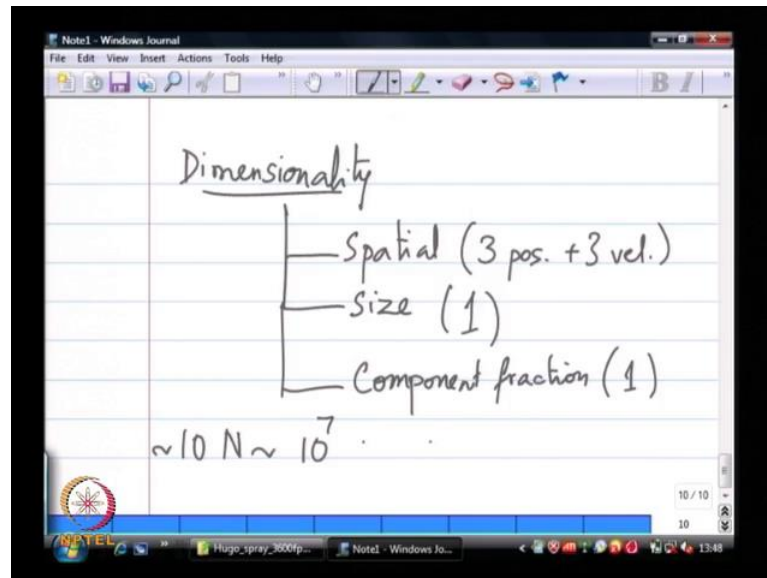 Note1 - Windows Journal
File Edit View Insert Actions Tools Help
B I
Dimensionality
Spatial (3 pos. + 3 vel.)
Size (1)
Component fraction (1)
~10 N ~ 10^7
10 / 10
10
NPTEL
Hugo_spray_3600fp...
Note1 - Windows Jo...
13:48